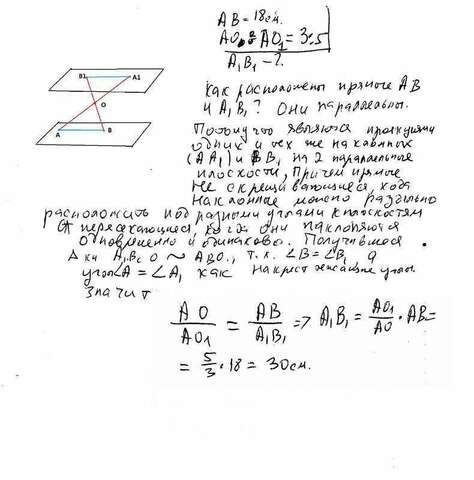 AB = 18см.
AO : AO₁ = 3:5
A₁B₁ - ?
Как расположены прямые AB
и A₁B₁? Они параллельны.
Потому что являются проекциями
одних и тех же наклонных
(AA₁) и BB₁ на 2 параллельные
плоскости, Причем прямые
Не скрещивающиеся, когда
Наклонные можно
расположить под разными углами к плоскостям
А пересекающиеся, когда они наклоняются
одновременно и одинаково. Получившиеся
Δки A₁B₁O ~ ABO., т.к. ∠B = ∠B₁, а
угол∠A = ∠A₁ как накрест лежащие углы.
Значит
AO/AO₁ = AB/A₁B₁ => A₁B₁ = AO₁/AO · AB =
= 5/3 · 18 = 30см.
B1 A1
O
A B